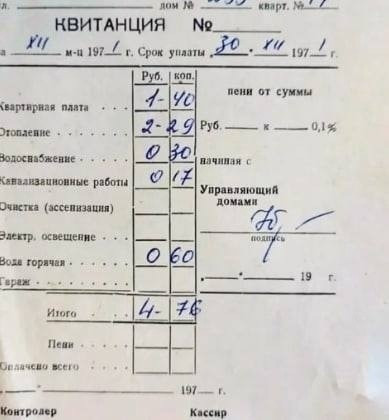 ул. дом № кварт. №
КВИТАНЦИЯ №
XII м-ц 1971 г. Срок уплаты „30" XII 1971 г.
Руб. коп.
Квартирная плата 1-40
Отопление 2-29
Водоснабжение 0 30
Канализационные работы 0 17
Очистка (ассенизация)
Электр. освещение
Вода горячая 0 60
Гараж
Итого 4- 76
Пени
Оплачено всего
пени от суммы
Руб. к 0,1%
начиная с
Управляющий
домами
подпись
„ " 19 г.
„ " 197 г.
Контролер Кассир